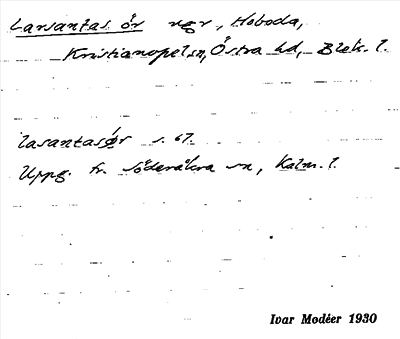 Larsantas ör ngr, Hoboda,
Kristianopel sn, Östra hd, Blek. l.
lasantasör s. 67.
Uppg. fr. Söderåkra sn, Kalm. l.
Ivar Modéer 1930